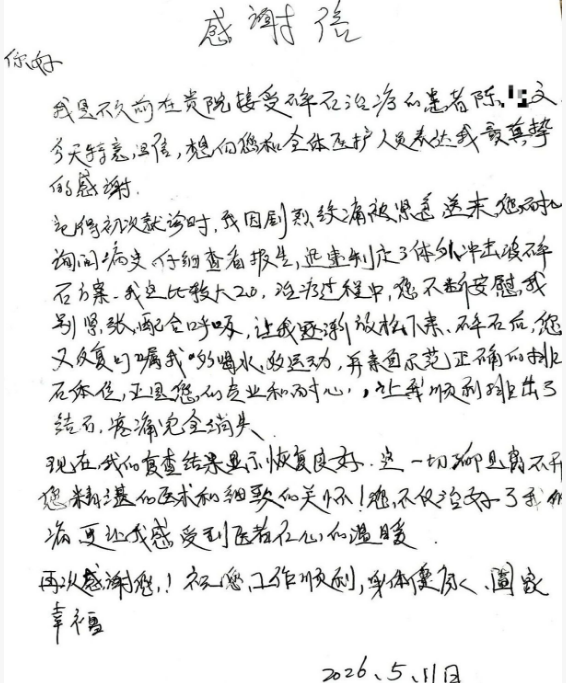 感谢信
你好
我是不久前在贵院接受碎石治疗的患者陈 文
今天特意写信,想向您和全体医护人员表达我最真挚
的感谢.
记得初次就诊时,我因剧烈绞痛被紧急送来,您耐心
询问病史仔细查看报告,迅速制定了体外冲击波碎
石方案.我 比较大 ,治疗过程中,您不断安慰,我
别紧张,配合呼吸,让我逐渐放松下来.碎石后,您
又反复叮嘱我 喝水,多运动,并亲自示范正确的排
石体位,正是您的专业和耐心,,让我顺利排出了
结石,疼痛完全消失
现在我的复查结果显示恢复良好.这一切都离不开
您精湛的医术和细致的关怀!您不仅治好了我的
病更让我感受到医者仁心的温暖.
再次感谢您,!祝您,工作顺利,身体健康、阖家
幸福
2026、5、11日